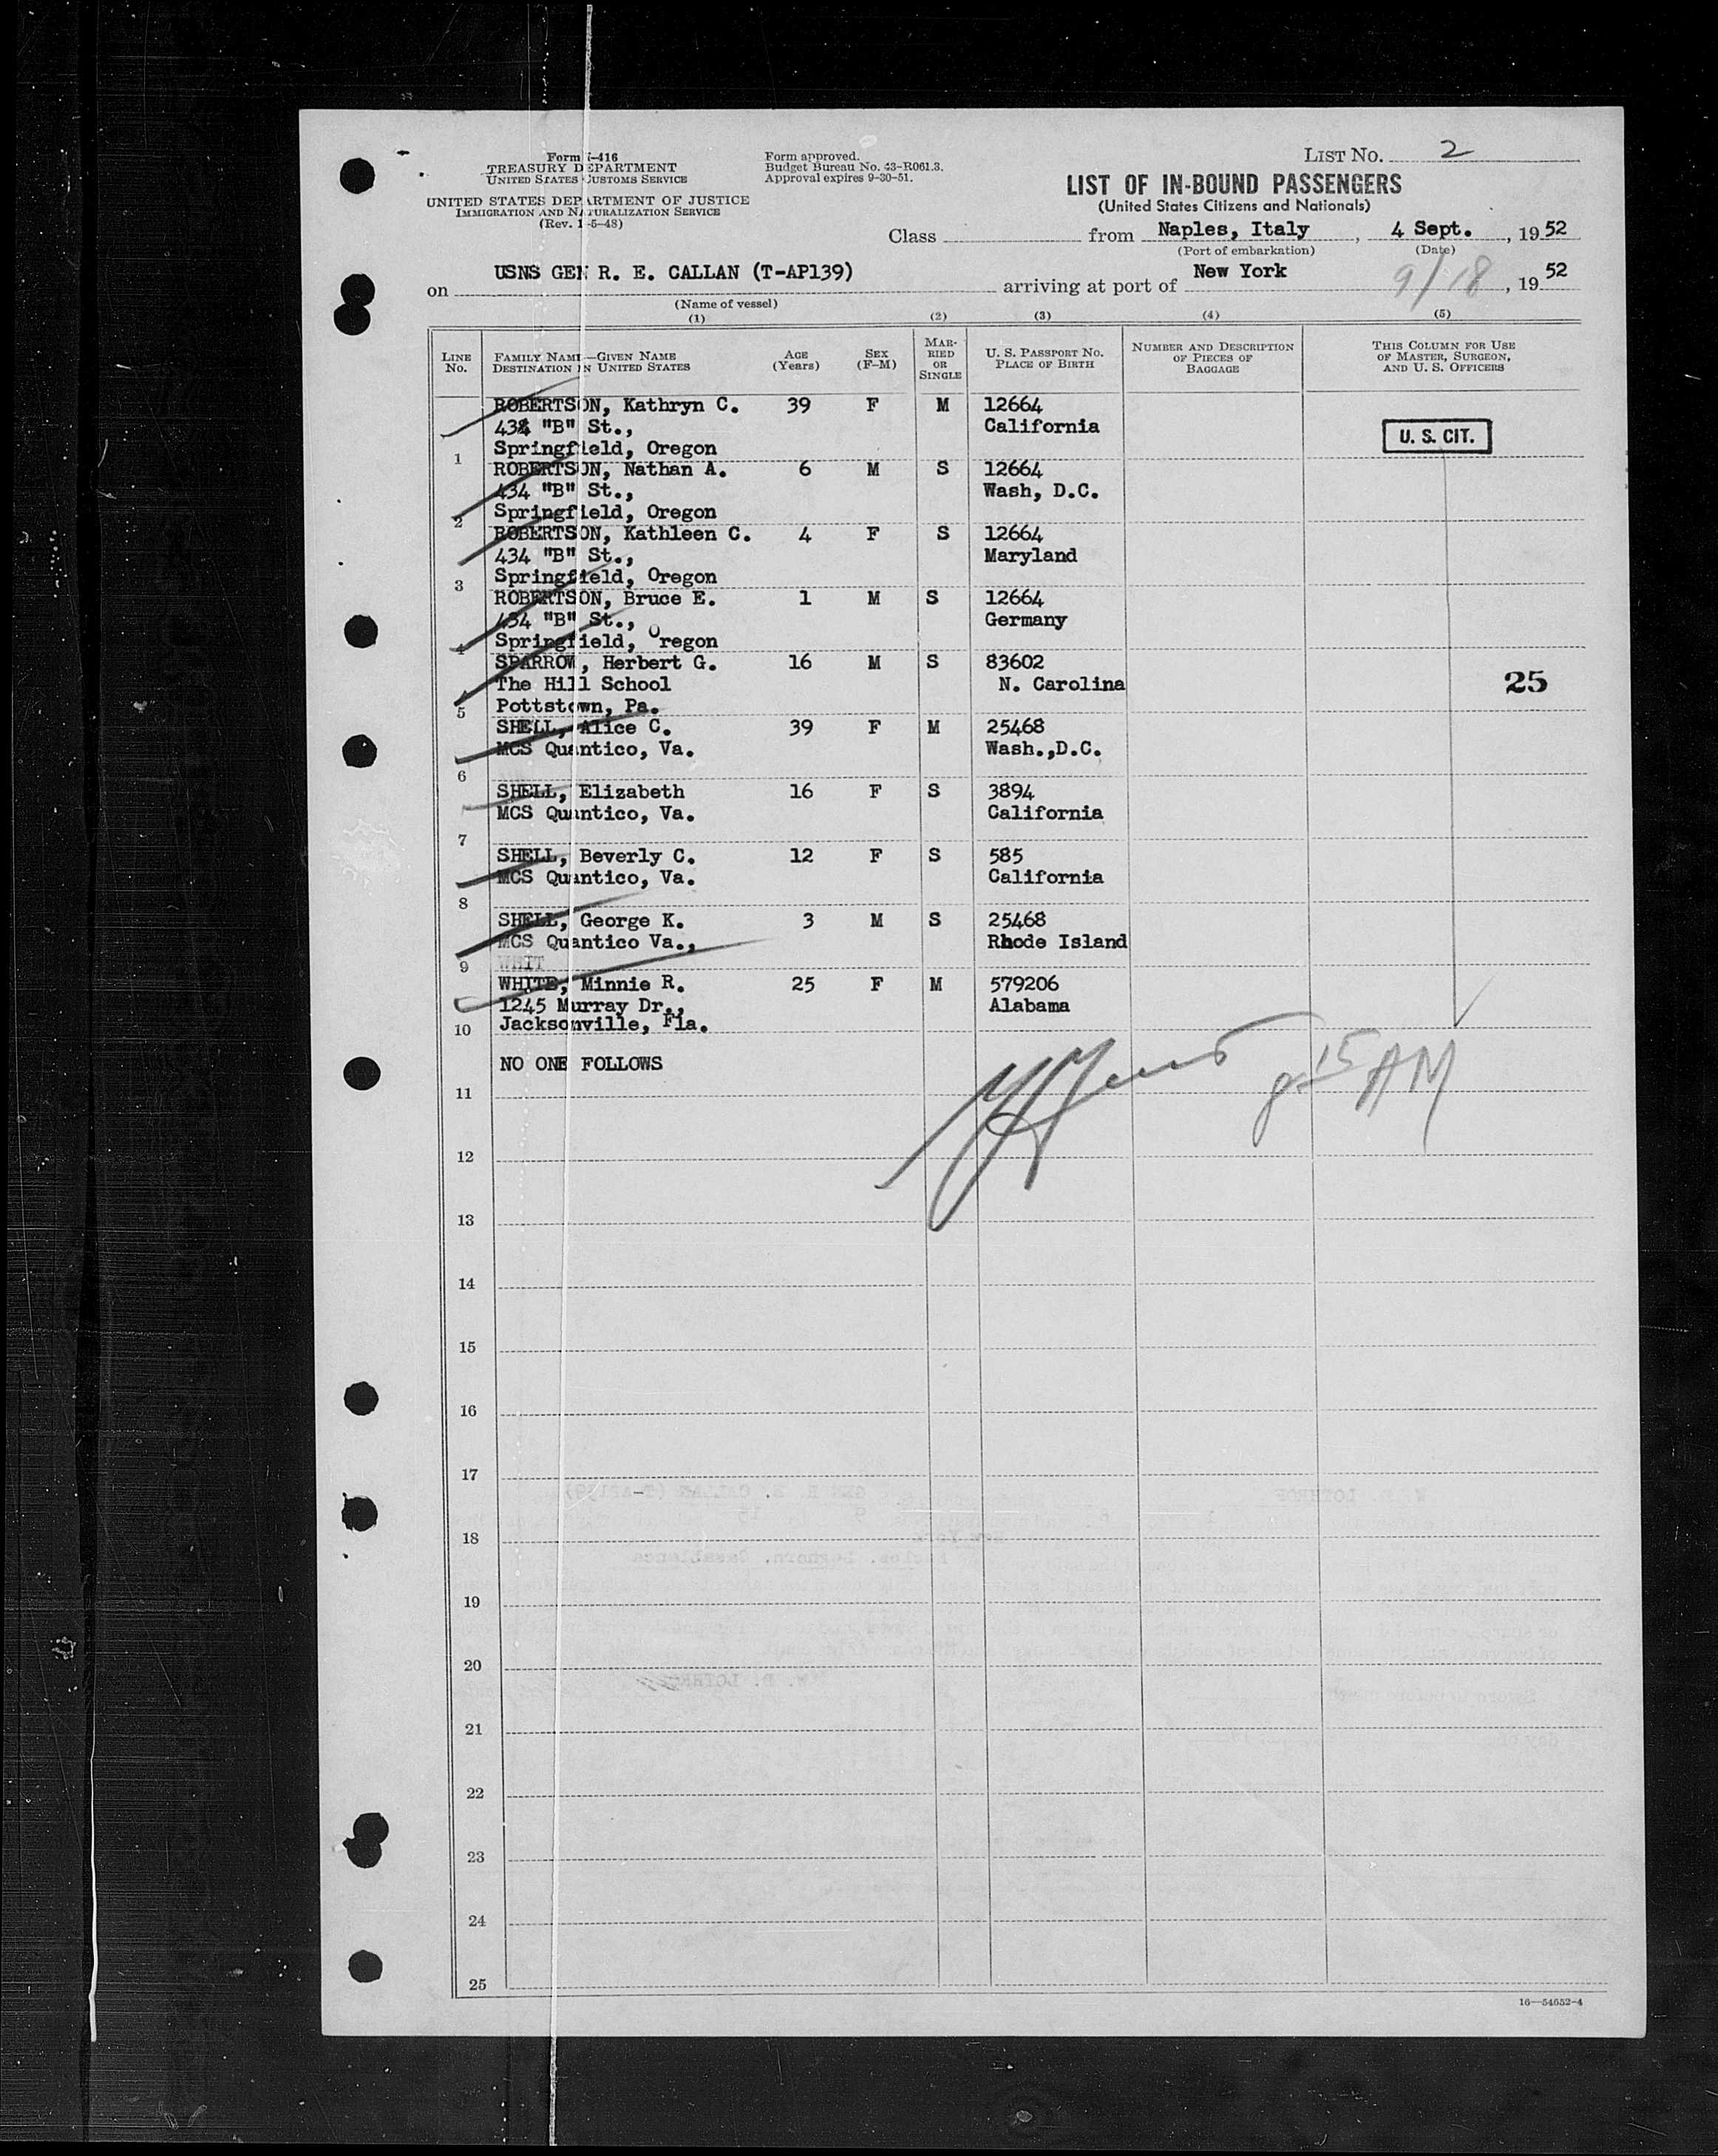 Form I-416
TREASURY DEPARTMENT
UNITED STATES CUSTOMS SERVICE
UNITED STATES DEPARTMENT OF JUSTICE
IMMIGRATION AND NATURALIZATION SERVICE
(Rev. 1-5-48)
Form approved.
Budget Bureau No. 43-R061.3.
Approval expires 9-30-51.
LIST NO. 2
LIST OF IN-BOUND PASSENGERS
(United States Citizens and Nationals)
Class from Naples, Italy, 4 Sept., 1952
(Port of embarkation) (Date)
on USNS GEN R. E. CALLAN (T-AP139) arriving at port of New York 9/18, 1952
(Name of vessel)
(1) (2) (3) (4) (5)
LINE NO. FAMILY NAME—GIVEN NAME DESTINATION IN UNITED STATES AGE (Years) SEX (F-M) MARRIED OR SINGLE U. S. PASSPORT NO. PLACE OF BIRTH NUMBER AND DESCRIPTION OF PIECES OF BAGGAGE THIS COLUMN FOR USE OF MASTER, SURGEON, AND U. S. OFFICERS
ROBERTSON, Kathryn C. 39 F M 12664
434 "B" St., California
U. S. CIT.
1 Springfield, Oregon
ROBERTSON, Nathan A. 6 M S 12664
434 "B" St., Wash, D.C.
2 Springfield, Oregon
ROBERTSON, Kathleen C. 4 F S 12664
434 "B" St., Maryland
3 Springfield, Oregon
ROBERTSON, Bruce E. 1 M S 12664
434 "B" St., Germany
4 Springfield, Oregon
SPARROW, Herbert G. 16 M S 83602
The Hill School N. Carolina 25
5 Pottstown, Pa.
SHELL, Alice C. 39 F M 25468
MCS Quantico, Va. Wash.,D.C.
6
SHELL, Elizabeth 16 F S 3894
MCS Quantico, Va. California
7
SHELL, Beverly C. 12 F S 585
MCS Quantico, Va. California
8
SHELL, George K. 3 M S 25468
MCS Quantico Va., Rhode Island
9 WHIT
WHITE, Minnie R. 25 F M 579206
1245 Murray Dr., Alabama
10 Jacksonville, Fla.
NO ONE FOLLOWS
15 AM
11
12
13
14
15
16
17
18
19
20
21
22
23
24
25
16—54652-4